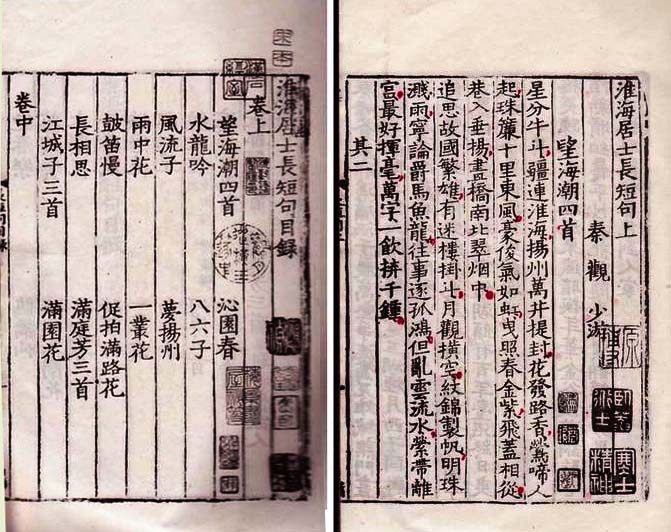 淮海居士長短句上
秦觀 少游
望海潮四首
星分牛斗疆連淮海揚州萬井提封花發路香鶯啼人
起珠簾十里東風豪俊氣如虹曳照春金紫飛蓋相從
巷入垂楊畫橋南北翠烟中
追思故國繁雄有迷樓掛斗月觀橫空紋錦製帆明珠
濺雨寧論爵馬魚龍往事逐孤鴻但亂雲流水縈帶離
宮最好揮毫萬字一飲拚千鍾
其二
淮海居士長短句目錄
卷上
望海潮四首 沁園春
水龍吟 八六子
風流子 夢揚州
雨中花 一叢花
鼓笛慢 促拍滿路花
長相思 滿庭芳三首
江城子三首 滿園花
卷中